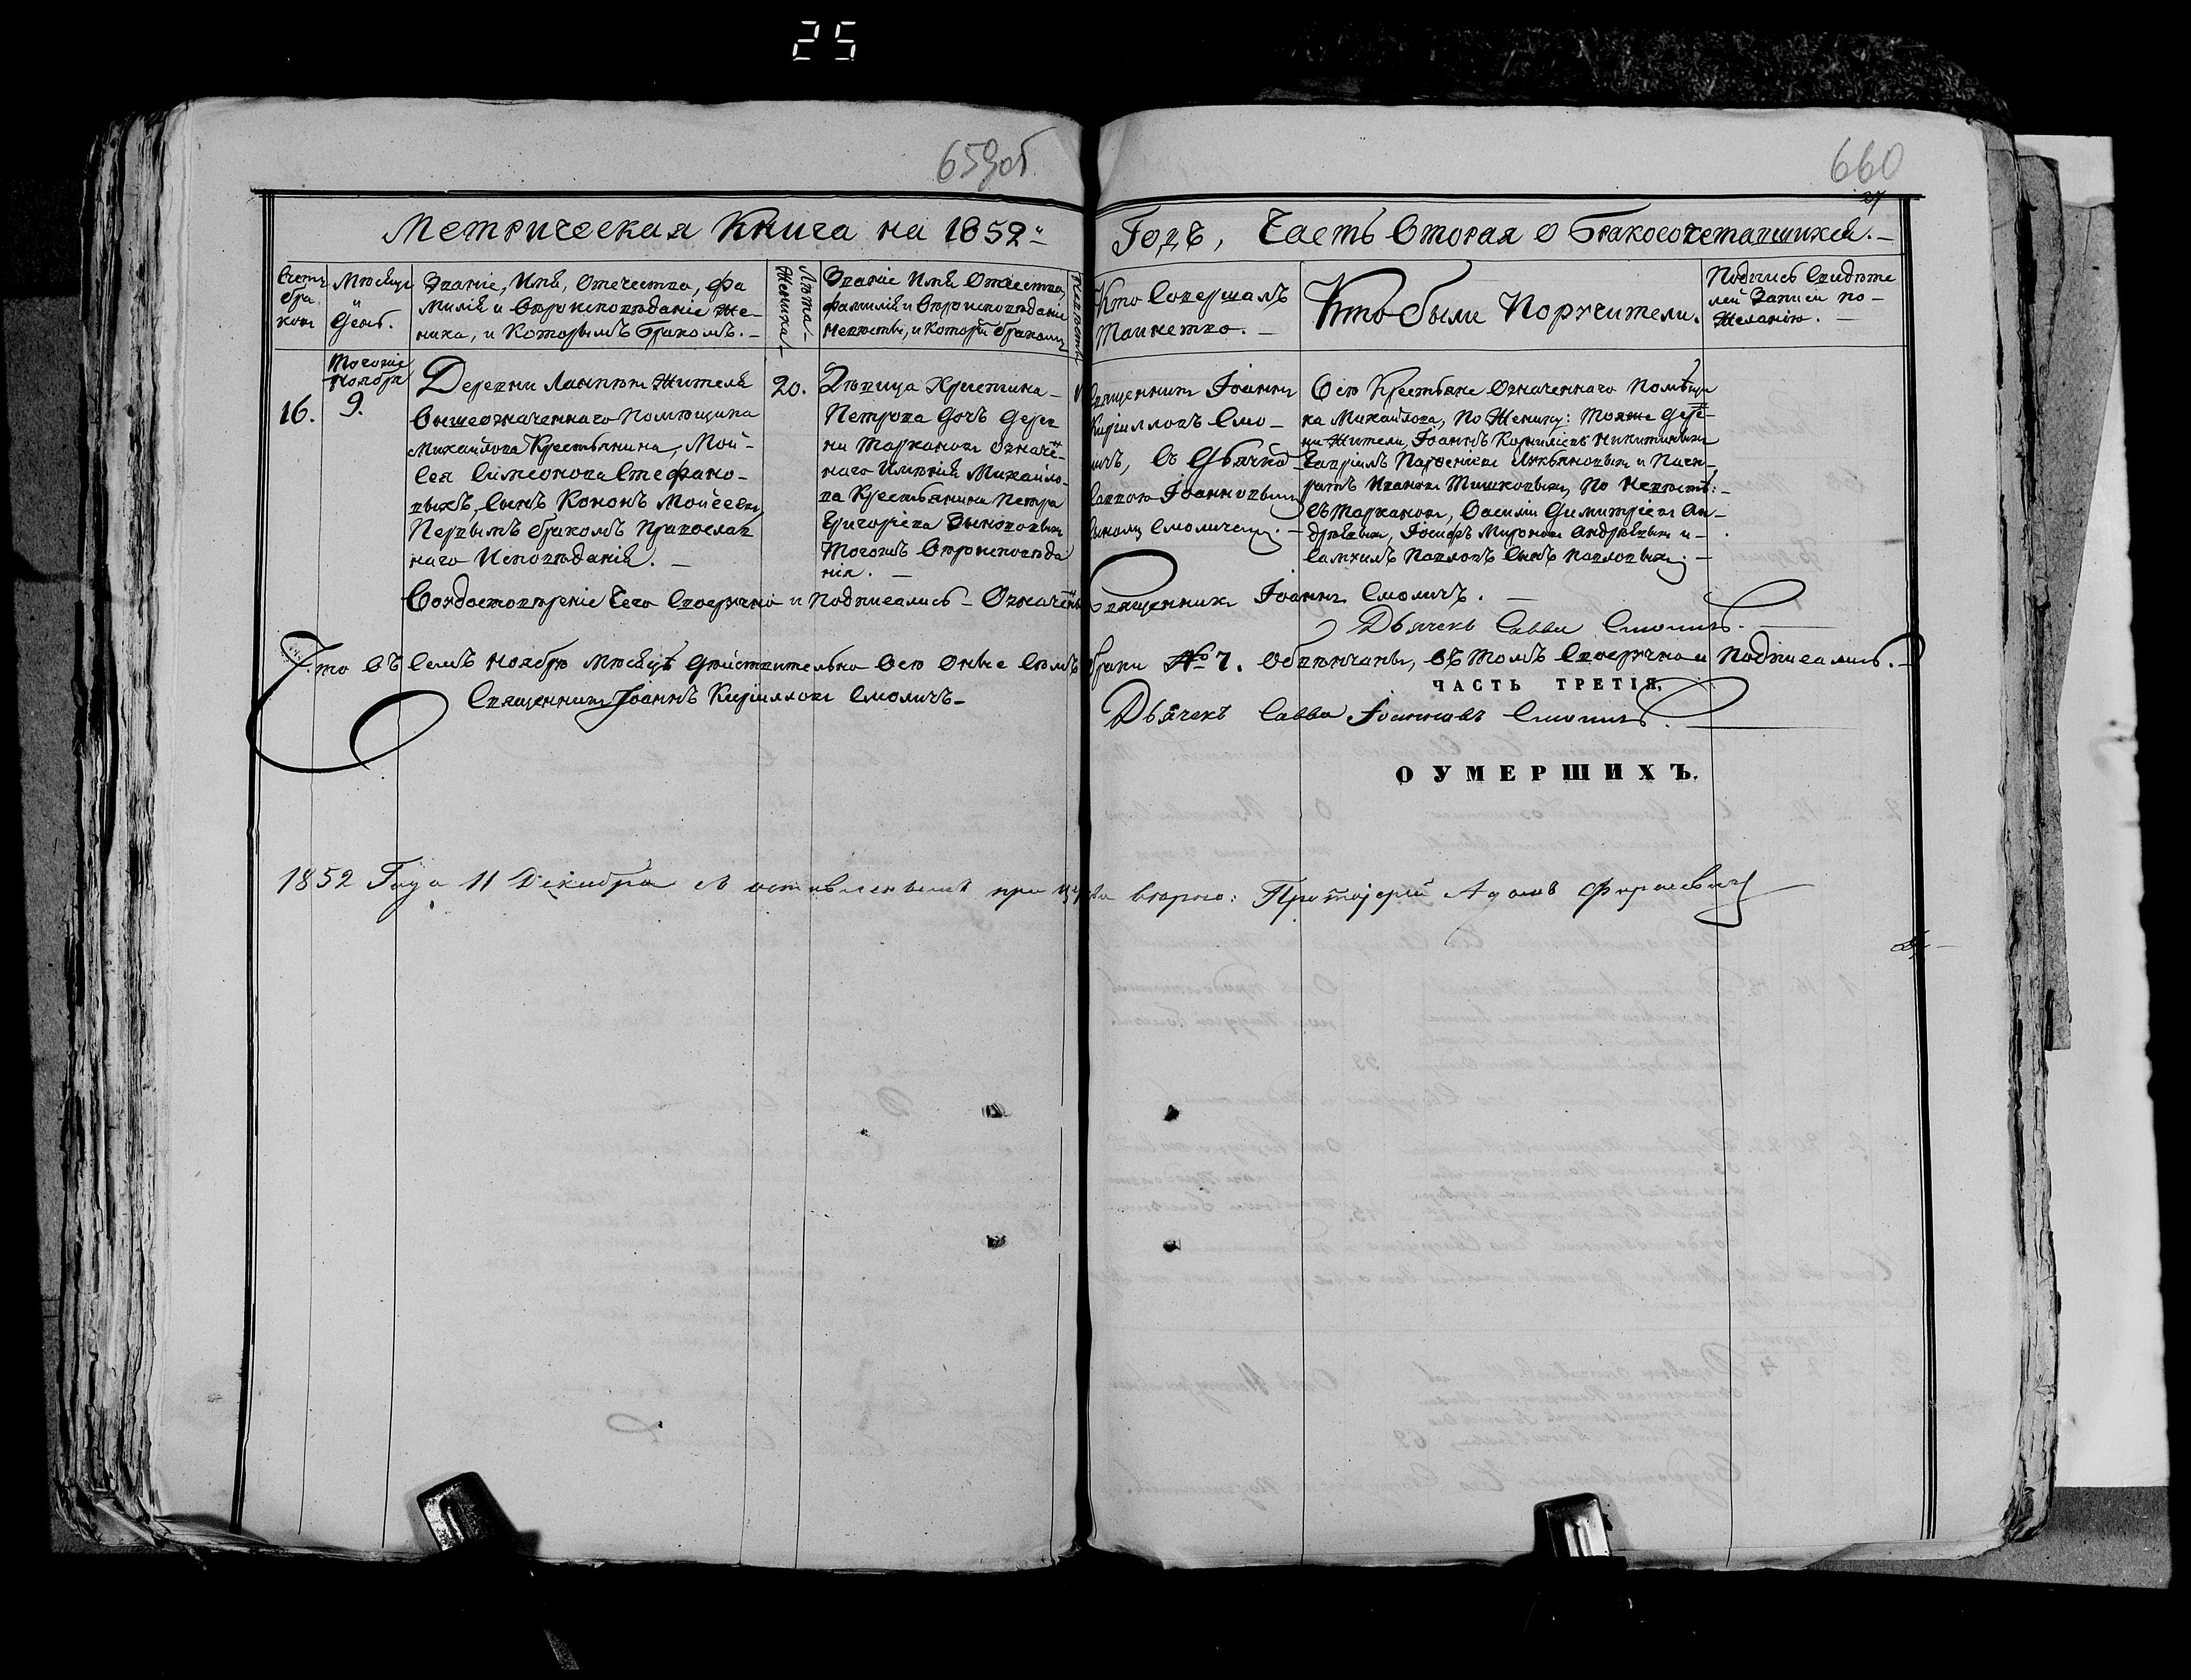 25
659об
660
27
Метрическая Книга на 1852й
Годъ, Часть Вторая о Бракосочетавшихся.
Счетъ бра ковъ
Мѣсяцъ и день.
Званіе, Имя, Отечество, Фа
милія и Вѣроисповѣданіе Же-
ниха, и Которымъ Бракомъ.
Лѣта Жениха
Званіе Имя Отчество
фамилія и Вѣроисповѣданіе
Невѣсты, и Которы бракомъ
Кто Совершалъ
Таинство.
Кто были Поручители.
Подпись Свидѣте
лей Записи по-
Желанію.
16.
Тогоже
Ноября
9.
Деревни Лаппы Жителя
Вышеозначеннаго Помѣщика
Михайлова Крестьянина, Мой-
сея Симеонова Стефано-
выхъ, Сынъ Кононъ Мойсеевъ
Первымъ бракомъ Православ
наго Исповѣданія.
20.
Дѣвица Христина
Петрова Дочь Дерев
ни Тарканов Означен-
наго Имѣнія Михайло-
ва Крестьянина Петра
Григоріева
Тогожъ Вѣроисповѣда
нія.
Священникъ Іоаннъ
Кирилловъ Смо-
личъ, Съ Дьячко
Саввою Іоанновымъ
сыномъ Смоличемъ.
Всѣ Крестьяне Означеннаго Помѣщи
ка Михайлова, По Жениху: Тояже Дере-
вни Жители, Іоаннъ Корниліевъ Никитины
Гавріилъ Парѳеніевъ Лукьяновы и
Ивановъ Тишковы, По Невѣстѣ:
Василій Димитріевъ Ан-
дрѣевы, Іосифъ Миронов Андрѣевы и-
Самуилъ Павловъ Сынъ Павловы.
Воудостовѣреніе Чего Своеручно и Подписались Означен
Священникъ Іоаннъ Смоличъ.
Дьячекъ Савва Смоличъ.
Что Въ Семъ Ноябрѣ Мѣсяцѣ Дѣйствительно Всѣ Оные Сѣмъ
браки № 7. Обвѣнчаны, въ Томъ Своеручно и Подписались.
ЧАСТЬ ТРЕТІЯ.
Священникъ Іоаннъ Кирилловъ Смоличъ
Дьячекъ Савва Іоанновъ Смоличъ.
О УМЕРШИХЪ.
1852 Года 11 Декабря съ оставленными при церкви вѣрно: Протоіерей Адамъ